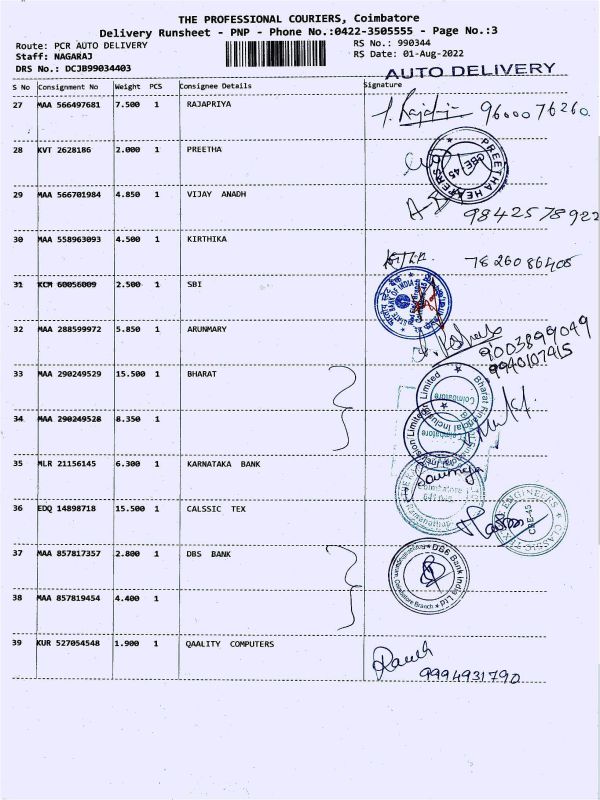 THE PROFESSIONAL COURIERS, Coimbatore
Delivery Runsheet - PNP - Phone No.:0422-3505555 - Page No.:3
Route: PCR AUTO DELIVERY RS No.: 990344
Staff: NAGARAJ RS Date: 01-Aug-2022
DRS No.: DCJB99034403
AUTO DELIVERY
S No Consignment No Weight PCS Consignee Details Signature
27 MAA 566497681 7.500 1 RAJAPRIYA 9600076260
28 KVT 2628186 2.000 1 PREETHA
CBE 45
29 MAA 566701984 4.850 1 VIJAY ANADH 9842578922
30 MAA 558963093 4.500 1 KIRTHIKA 7826086405
31 KCM 60056009 2.500 1 SBI
STATE BANK OF INDIA
32 MAA 288599972 5.850 1 ARUNMARY 9003899049
9940107915
33 MAA 290249529 15.500 1 BHARAT
Bharat Financial Inclusion Limited
Coimbatore
34 MAA 290249528 8.350 1
35 MLR 21156145 6.300 1 KARNATAKA BANK
Coimbatore
36 EDQ 14898718 15.500 1 CALSSIC TEX
CLASSIC TEX ENGINEERS
CBE-45
37 MAA 857817357 2.800 1 DBS BANK
DBS Bank India Ltd
Coimbatore Branch
38 MAA 857819454 4.400 1
39 KUR 527054548 1.900 1 QAALITY COMPUTERS
9994931790